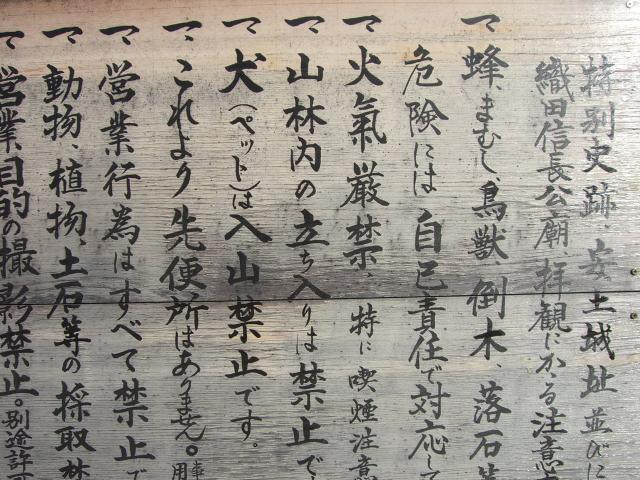 特別史跡、安土城址並びに
織田信長公廟、拝観にかゝる注意
一、蜂、まむし、鳥獣倒木、落石等
危険には自己責任で対応して
一、火氣厳禁、特に喫煙注意
一、山林内の立ち入りは禁止で
一、犬(ペット)は入山禁止です。
一、これより先便所はありません。
一、営業行為はすべて禁止で
一、動物、植物、土石等の採取禁
一、営業目的の撮影禁止。別途許可